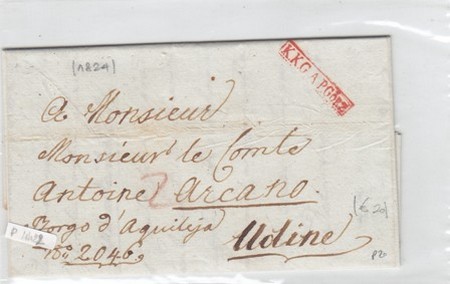 (1824)
K.K.G.A.P.Görz
à Monsieur
Monsieur le Comte
Antoine Arcano
Borgo d'Aquileja
No 2046,
Udine
(€ 20)